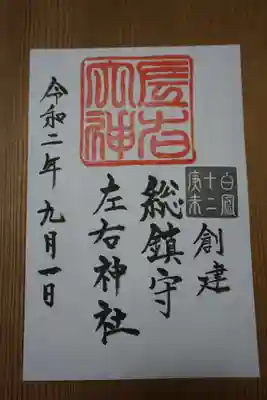 白鳳
十二
創建
総鎮守
左右神社
令和二年 九月一日